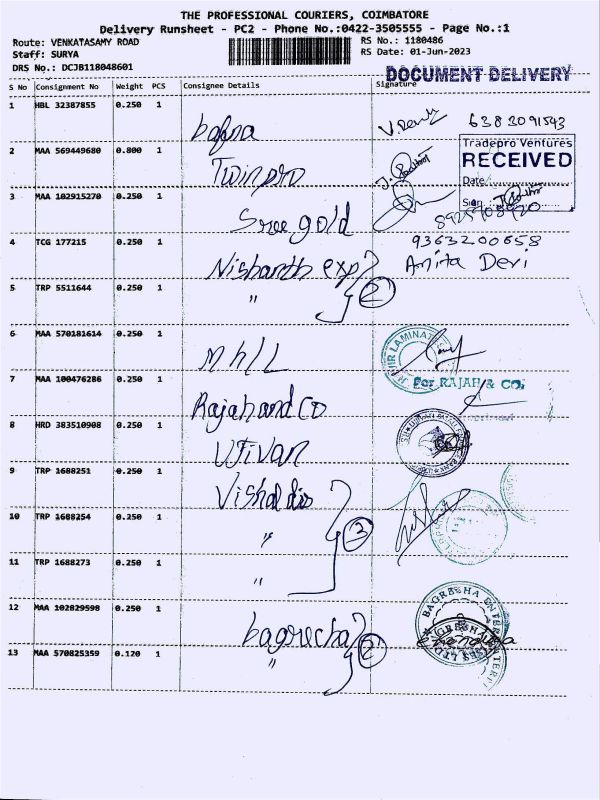 THE PROFESSIONAL COURIERS, COIMBATORE
Delivery Runsheet - PC2 - Phone No.:0422-3505555 - Page No.:1
Route: VENKATASAMY ROAD
RS No.: 1180486
Staff: SURYA
RS Date: 01-Jun-2023
DRS No.: DCJB118048601
DOCUMENT DELIVERY
S No Consignment No Weight PCS Consignee Details Signature
1 HBL 32387855 0.250 1
bafna
6383091543
Tradepro Ventures
RECEIVED
Date
Sign
2 MAA 569449680 0.800 1
Twinpro
3 MAA 102915270 0.250 1
Sree gold
8925908920
4 TCG 177215 0.250 1
Nishanth exp
9363200658
Anita Devi
5 TRP 5511644 0.250 1
" 2
6 MAA 570181614 0.250 1
M h/L
7 MAA 100476286 0.250 1
Rajahand CO
For RAJAH & CO.
8 HRD 383510908 0.250 1
UJIVAN
9 TRP 1688251 0.250 1
Vishal dis
10 TRP 1688254 0.250 1
" 3
11 TRP 1688273 0.250 1
"
12 MAA 102829598 0.250 1
bagrecha
BAGRECHA
13 MAA 570825359 0.120 1
" 2